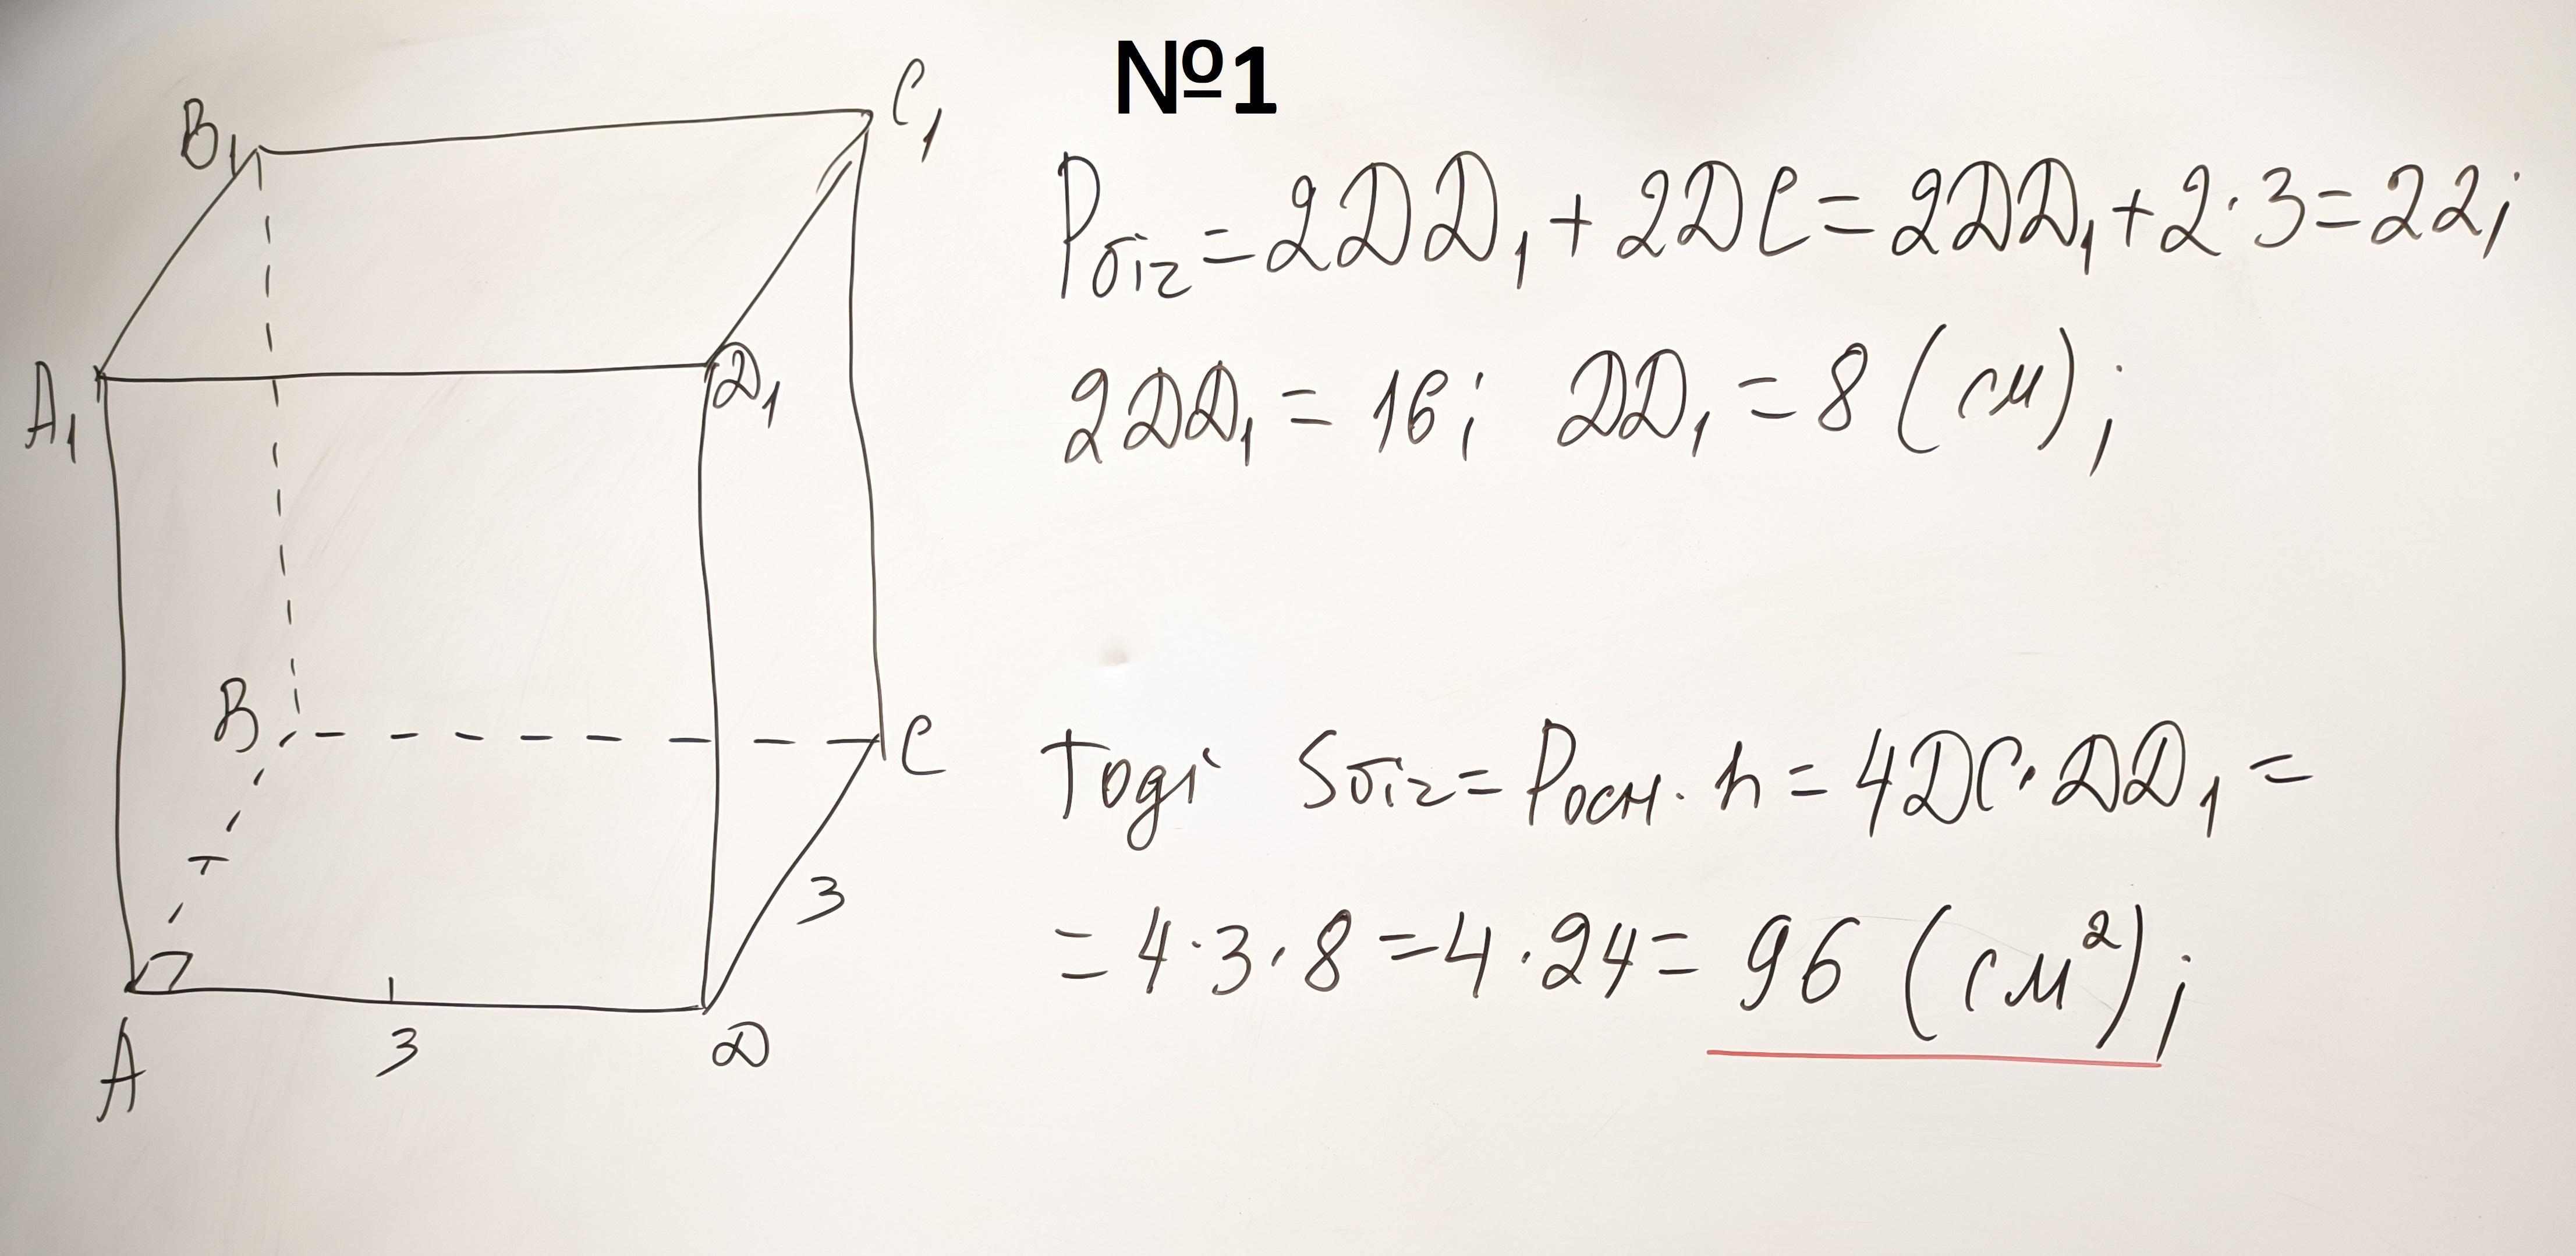 №1
B₁
C₁
A₁
D₁
B
C
3
A
3
D
Pбіг = 2DD₁ + 2DC = 2DD₁ + 2·3 = 22;
2DD₁ = 16; DD₁ = 8 (см);
Тоді Sбіг = Pосн · h = 4DC · DD₁ =
= 4·3·8 = 4·24 = 96 (см²);